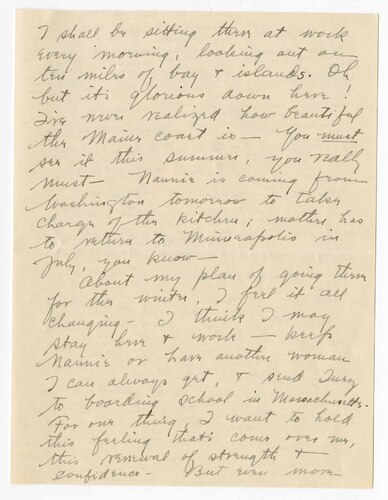 I shall be sitting there at work
every morning, looking out on
ten miles of bay & islands. Oh
but it's glorious down here!
I've never realized how beautiful
the Maine coast is — You must
see it this summer, you really
must — Nannie is coming from
Washington tomorrow to take
charge of the kitchen; mother has
to return to Minneapolis in
July, you know —
About my plan of going there
for the winter, I feel it all
changing — I think I may
stay here & work — keep
Nannie or have another woman
I can always get, & send
to boarding school in Massachusetts.
For one thing, I want to hold
this feeling that's come over me,
this renewal of strength &
confidence — But even more